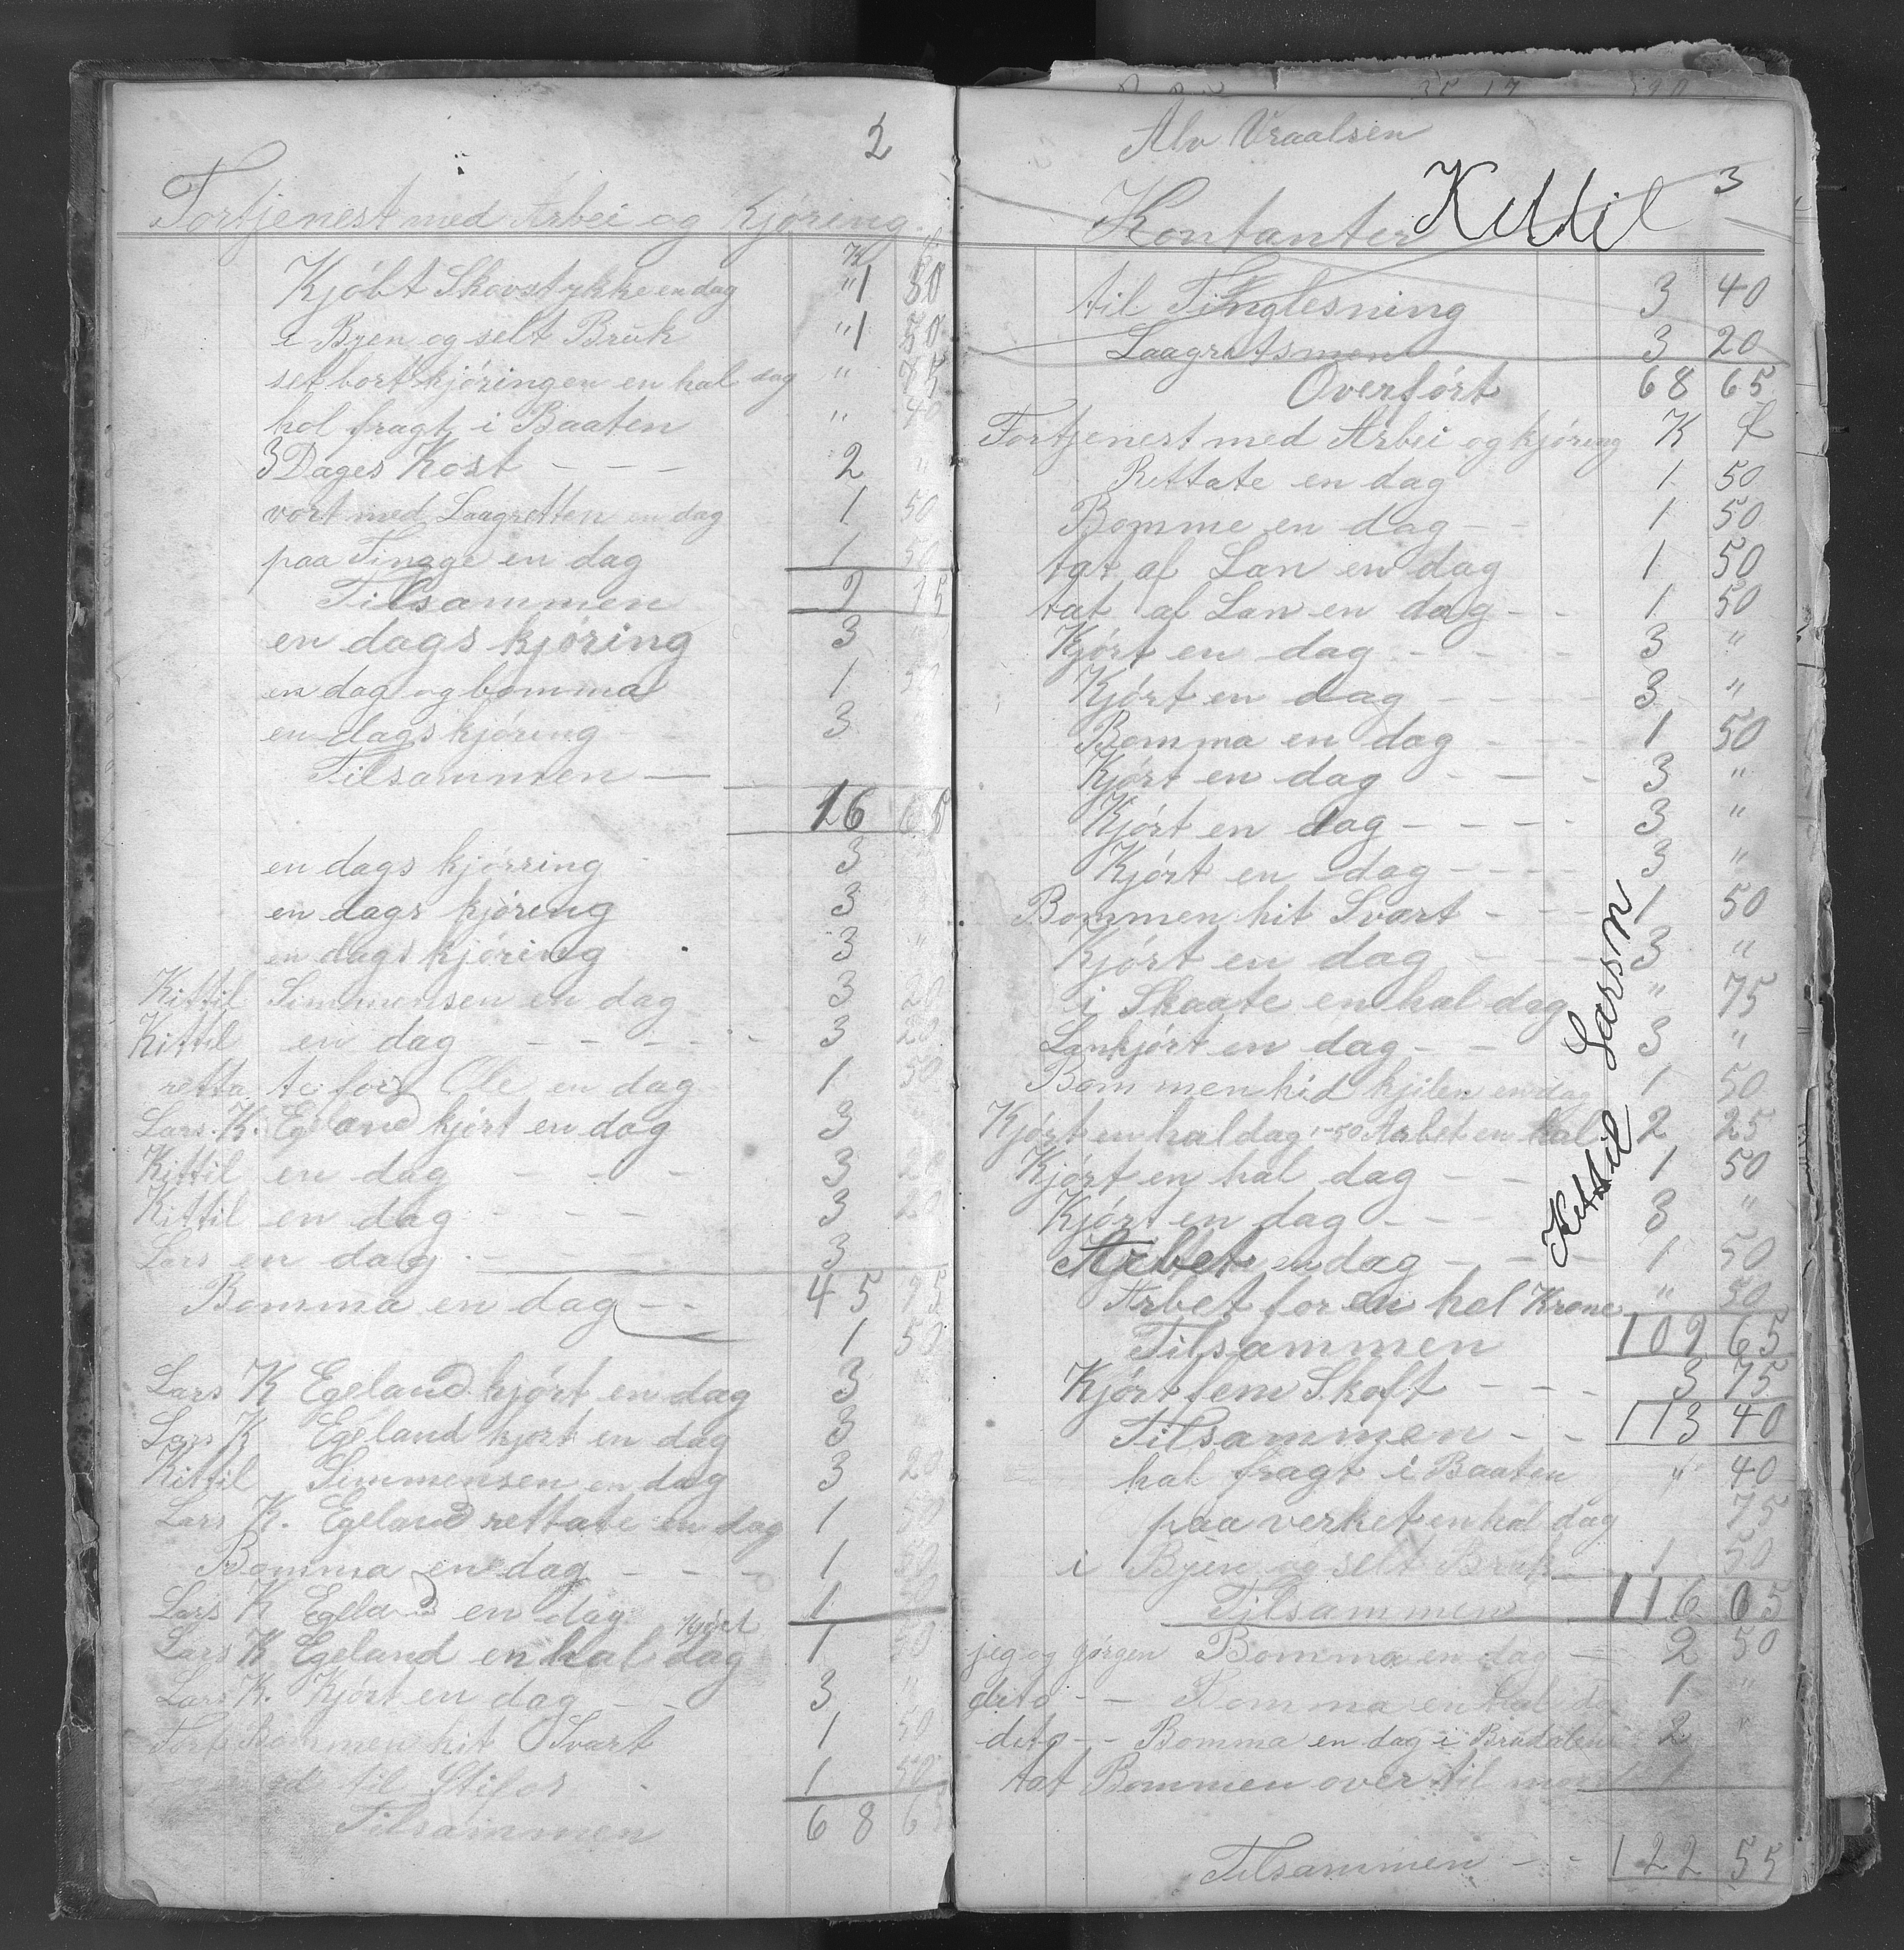 2
Fortjenest med Arbei og Kjøring
K
Kjøbt Skovstykke en dag " 1 50
i Byen og selt Bruk " 1 50
set bort kjøringen en hal dag " 75
hol fragt i Baaten " 40
3 Dages Kost - - - 2 "
vort med Laagretten en dag 1 50
paa Tingge en dag 1 50
Tilsammen 9 15
en dags kjøring 3
en dag og bomma 1 50
en dags kjøring - - 3 "
Tilsammen —
16 65
en dags kjørring - 3
en dags kjøring 3
en dags kjøring 3 "
Kittil Simmensen en dag 3 20
Kittil en dag - - - - - 3 20
retta te for Ole en dag 1 50
Lars. K. Egeland kjørt en dag 3
Kittil en dag - - - 3 20
Kittil en dag - - - 3 20
Lars en dag - - - - 3
45 95
Bomma en dag - - 1 50
Lars K Egeland kjørt en dag 3
Lars K Egeland kjørt en dag 3 "
Kittil Simmensen en dag 3 20
Lars K. Egeland rettate en dag 1 50
Bomma en dag - - - 1 50
Lars K Egeland en dag 1 50
Lars K Egeland en hal kjørt dag 1 50
Lars K. Kjørt en dag - - 3 "
Bommen hit Svart 1 50
til Stifos 1 50
Tilsammen 68 65
Alv Vraalsen
3
Kontanter Kittil
til Tinglesning 3 40
Laagretsmen 3 20
Overført 68 65
Fortjenest med Arbei og kjøring K ø
Rettate en dag 1 50
Bomme en dag - - 1 50
tat af Lan en dag 1 50
tat af Lan en dag - - 1 50
Kjørt en dag - - - - 3 "
Kjørt en dag - - - - 3 "
Bomma en dag - - - 1 50
Kjørt en dag - - - - 3 "
Kjørt en dag - - - - 3 "
Kjørt en dag - - - - 3 "
Bommen hit Svart - - - 1 50
Kjørt en dag - - - 3 "
i Skaate en hal dag " 75
Lankjørt en dag - - 3 "
Bommen hid kjilen en dag 1 50
Kjørt en hal dag 1-50 Arbet en hal 2 25
Kjørt en hal dag - - 1 50
Kjørt en dag - - - 3 "
Arbet en dag - - - 1 50
Arbet for en hel Krone " 50
Tilsammen 109 65
Kjørt fem Skaft - - - 3 75
Tilsammen - - 113 40
hal fragt i Baaten " 40
paa verket en hal dag 75
i Byen og selt Bruk 1 50
Tilsammen 116 05
jeg og Jørgen Bomma en dag - 2 50
dito - - Bomma en hal 1 "
dito - - Bomma en dag i 2 "
tat Bommen over til 1
Tilsammen - - 122 55
Kittil Larsn